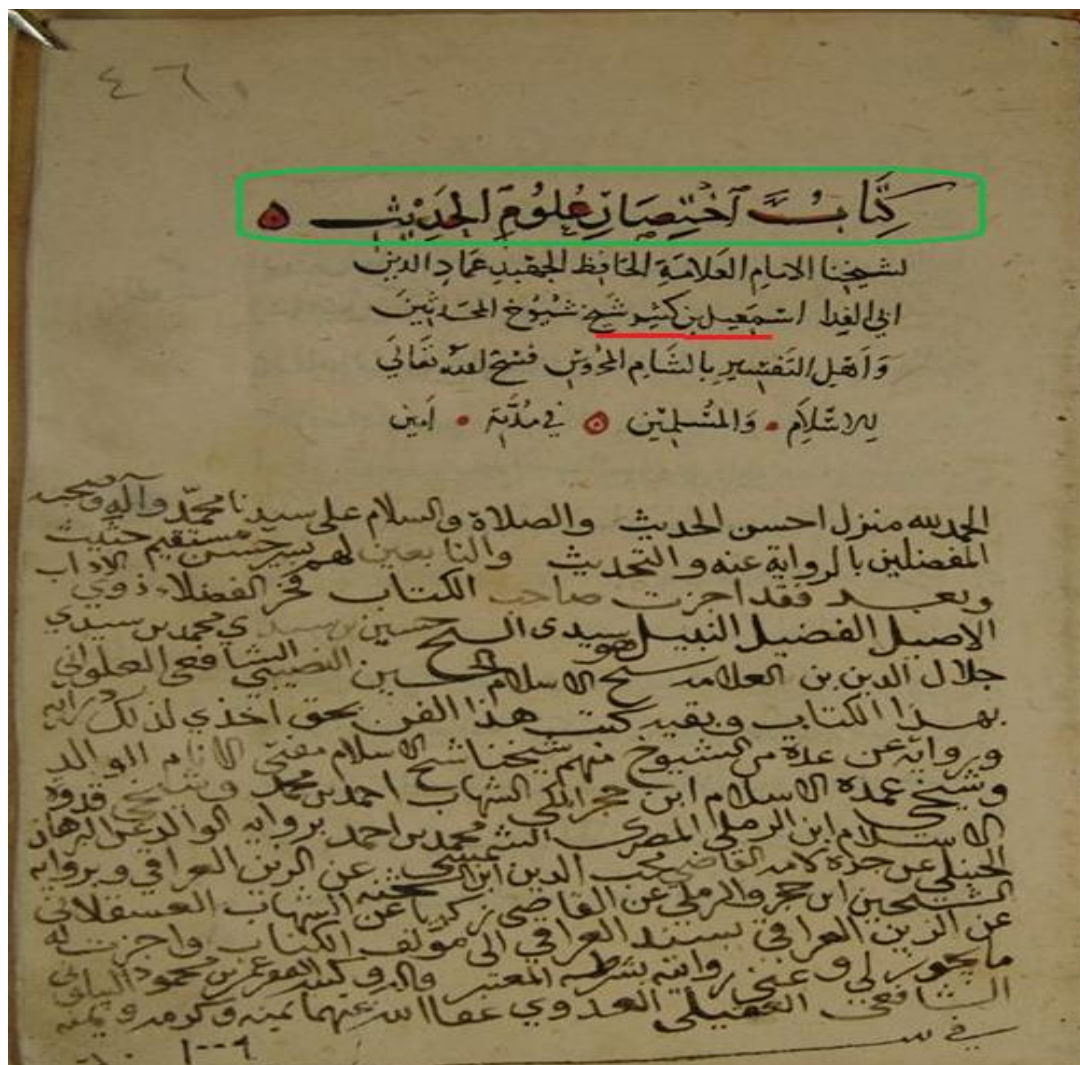 ٤٦
كتاب اختصار علوم الحديث
لشيخنا الامام العلامة الحافظ الجهبذ عماد الدين
ابي الفدا اسمعيل بن كثير شيخ شيوخ المحدثين
وَاهل التفسير بالشام المحروس فسح الله تعالى
للاسلام والمسلمين في مدته امين
الحمد لله منزل احسن الحديث والصلاة والسلام على سيدنا محمّد وآله وصحبه
المفضلين بالرواية عنه والتحديث والتابعين لهم بسير حسن مستقيم حثيث
وبعد فقد اجزت صاحب الكتاب فخر الفضلاء ذوي الاداب
الاصيل الفضيل النبيل هو سيدى الشيخ حسين بن سيدي محمد بن سيدي
جلال الدين بن العلامه شيخ الاسلام الحسين النصيبي الشافعي
بهذا الكتاب وبقيه كتب هذا الفن بحق اخذي لذلك
وروايه عن عدة من الشيوخ منهم شيخنا شيخ الاسلام مفتي الانام الوالد
وشيخي عمدة الاسلام ابن حجر المكي الشهاب احمد بن محمد وشيخي قدوة
الاسلام ابن الرملي المصرى الشمس محمد بن احمد بروايه الوالد عن البرهان
الحنبلي عن جده لامه القاضي محب الدين ابن عن الزين العراقي وبروايه
الشيخين ابن حجر والرملي عن القاضي زكريا عن الشهاب العسقلاني
عن الزين العراقي بسند العراقي الى مؤلف الكتاب واجزت له
ما يجوز لي وعني روايته بشرطه المعتبر عمر بن محمود
الشافعي العقيلي العدوي عفا الله عنهما بمنه وكرمه ويمنه
في سـ
١٠٠٩